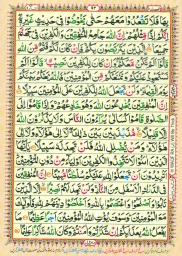 بِهَا فَلَا تَقْعُدُوْا مَعَهُمْ حَتّٰى يَخُوْضُوْا فِيْ حَدِيْثٍ غَيْرِهٖ
اِنَّكُمْ اِذًا مِّثْلُهُمْ اِنَّ اللّٰهَ جَامِعُ الْمُنٰفِقِيْنَ وَالْكٰفِرِيْنَ فِيْ جَهَنَّمَ
جَمِيْعًا الَّذِيْنَ يَتَرَبَّصُوْنَ بِكُمْ فَاِنْ كَانَ لَكُمْ فَتْحٌ مِّنَ اللّٰهِ
قَالُوْا اَلَمْ نَكُنْ مَّعَكُمْ وَاِنْ كَانَ لِلْكٰفِرِيْنَ نَصِيْبٌ قَالُوْا اَلَمْ
نَسْتَحْوِذْ عَلَيْكُمْ وَنَمْنَعْكُمْ مِّنَ الْمُؤْمِنِيْنَ فَاللّٰهُ يَحْكُمُ بَيْنَكُمْ يَوْمَ
الْقِيٰمَةِ وَلَنْ يَّجْعَلَ اللّٰهُ لِلْكٰفِرِيْنَ عَلَى الْمُؤْمِنِيْنَ
سَبِيْلًا اِنَّ الْمُنٰفِقِيْنَ يُخٰدِعُوْنَ اللّٰهَ وَهُوَ خَادِعُهُمْ وَاِذَا قَامُوْا
اِلَى الصَّلٰوةِ قَامُوْا كُسَالٰى يُرَآءُوْنَ النَّاسَ وَلَا يَذْكُرُوْنَ اللّٰهَ
اِلَّا قَلِيْلًا مُّذَبْذَبِيْنَ بَيْنَ ذٰلِكَ لَا اِلٰى هٰٓؤُلَآءِ وَلَا اِلٰى
هٰٓؤُلَآءِ وَمَنْ يُّضْلِلِ اللّٰهُ فَلَنْ تَجِدَ لَهٗ سَبِيْلًا يٰٓاَيُّهَا
الَّذِيْنَ اٰمَنُوْا لَا تَتَّخِذُوا الْكٰفِرِيْنَ اَوْلِيَآءَ مِنْ دُوْنِ الْمُؤْمِنِيْنَ
اَتُرِيْدُوْنَ اَنْ تَجْعَلُوْا لِلّٰهِ عَلَيْكُمْ سُلْطٰنًا مُّبِيْنًا اِنَّ الْمُنٰفِقِيْنَ
فِي الدَّرْكِ الْاَسْفَلِ مِنَ النَّارِ وَلَنْ تَجِدَ لَهُمْ نَصِيْرًا اِلَّا الَّذِيْنَ
تَابُوْا وَاَصْلَحُوْا وَاعْتَصَمُوْا بِاللّٰهِ وَاَخْلَصُوْا دِيْنَهُمْ لِلّٰهِ فَاُولٰٓئِكَ
مَعَ الْمُؤْمِنِيْنَ وَسَوْفَ يُؤْتِ اللّٰهُ الْمُؤْمِنِيْنَ اَجْرًا عَظِيْمًا مَا
يَفْعَلُ اللّٰهُ بِعَذَابِكُمْ اِنْ شَكَرْتُمْ وَاٰمَنْتُمْ وَكَانَ اللّٰهُ شَاكِرًا عَلِيْمًا